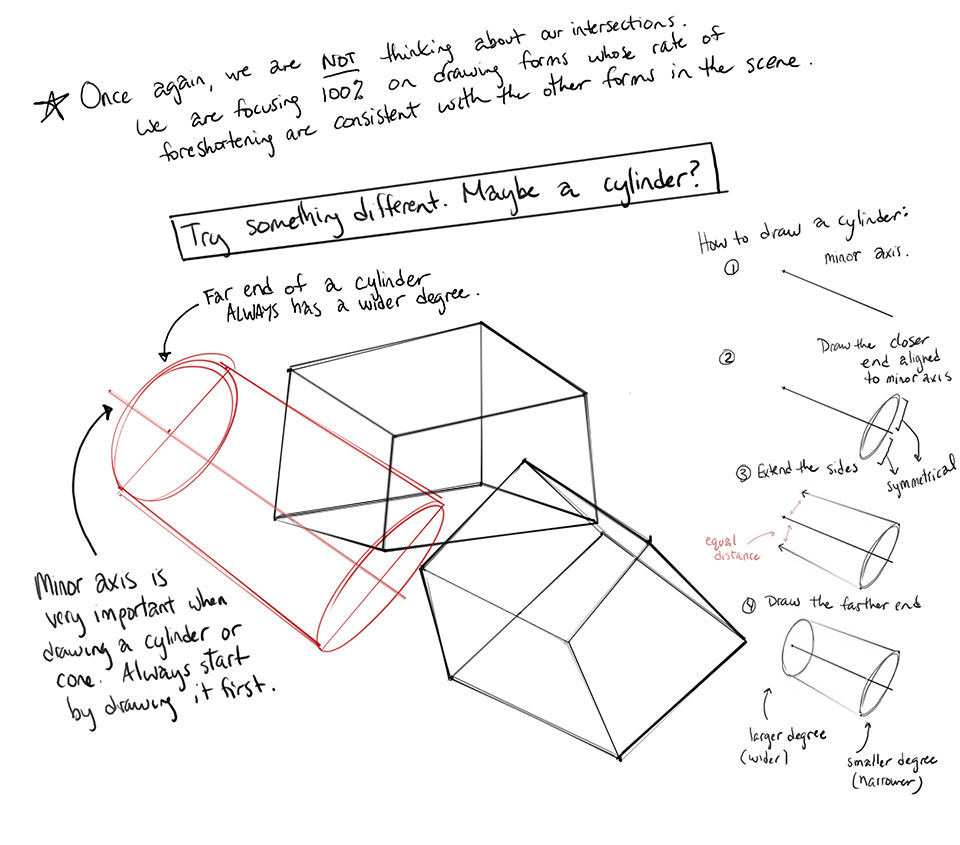 Once again, we are NOT thinking about our intersections.
We are focusing 100% on drawing forms whose rate of
foreshortening are consistent with the other forms in the scene.
Try something different. Maybe a cylinder?
Far end of a cylinder
ALWAYS has a wider degree.
Minor axis is
very important when
drawing a cylinder or
cone. Always start
by drawing it first.
How to draw a cylinder:
① minor axis.
②
Draw the closer
end aligned
to minor axis
symmetrical
③ Extend the sides
equal
distance
④ Draw the farther end
larger degree
(wider)
smaller degree
(narrower)